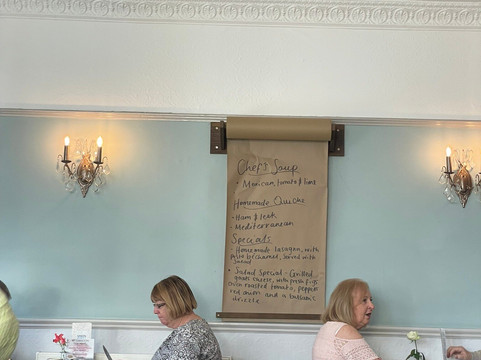 Chef's Soup
- Mexican tomato & lime
Homemade Quiche
- Ham & leek
- Mediterranean
Specials
- Homemade lasagna, with
bechamel, served with
Salad
- Salad Special - Grilled
goats cheese, with fresh figs
oven roasted tomato, peppers
red onion and a balsamic
drizzle